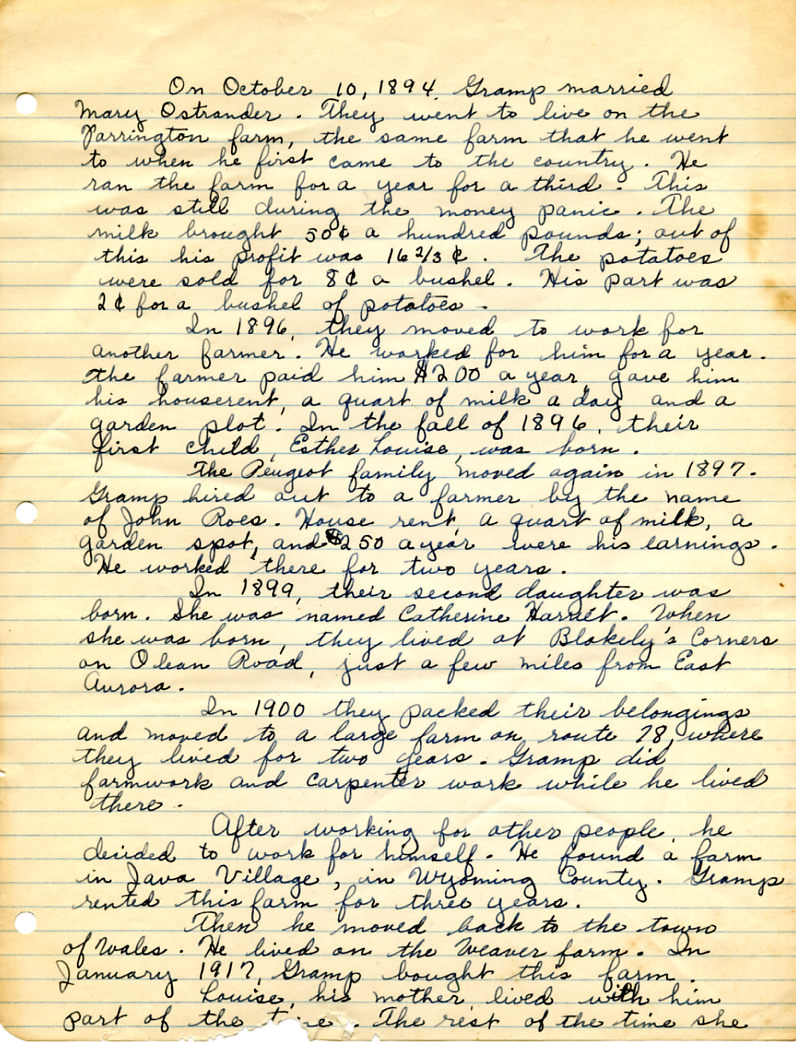 On October 10, 1894, Gramp married
Mary Ostrander. They went to live on the
Varrington farm, the same farm that he went
to when he first came to the country. He
ran the farm for a year for a third. This
was still during the money panic. The
milk brought 50¢ a hundred pounds; out of
this his profit was 16 2/3 ¢. The potatoes
were sold for 8¢ a bushel. His part was
2¢ for a bushel of potatoes.
In 1896, they moved to work for
another farmer. He worked for him for a year.
the farmer paid him $200 a year, gave him
his houserent, a quart of milk a day and a
garden plot. In the fall of 1896, their
first child, Esther Louise, was born.
The Peugeot family moved again in 1897.
Gramp hired out to a farmer by the name
of John Roes. House rent, a quart of milk, a
garden spot, and $250 a year were his earnings.
He worked there for two years.
In 1899, their second daughter was
born. She was named Catherine Harriet. When
she was born, they lived at Blakely's Corners
on Olean Road, just a few miles from East
Aurora.
In 1900 they packed their belongings
and moved to a large farm on route 78, where
they lived for two years. Gramp did
farmwork and carpenter work while he lived
there.
After working for other people, he
decided to work for himself. He found a farm
in Java Village, in Wyoming County. Gramp
rented this farm for three years.
Then he moved back to the town
of Wales. He lived on the Weaver farm. In
January 1917, Gramp bought this farm.
Louise, his mother lived with him
part of the time. The rest of the time she